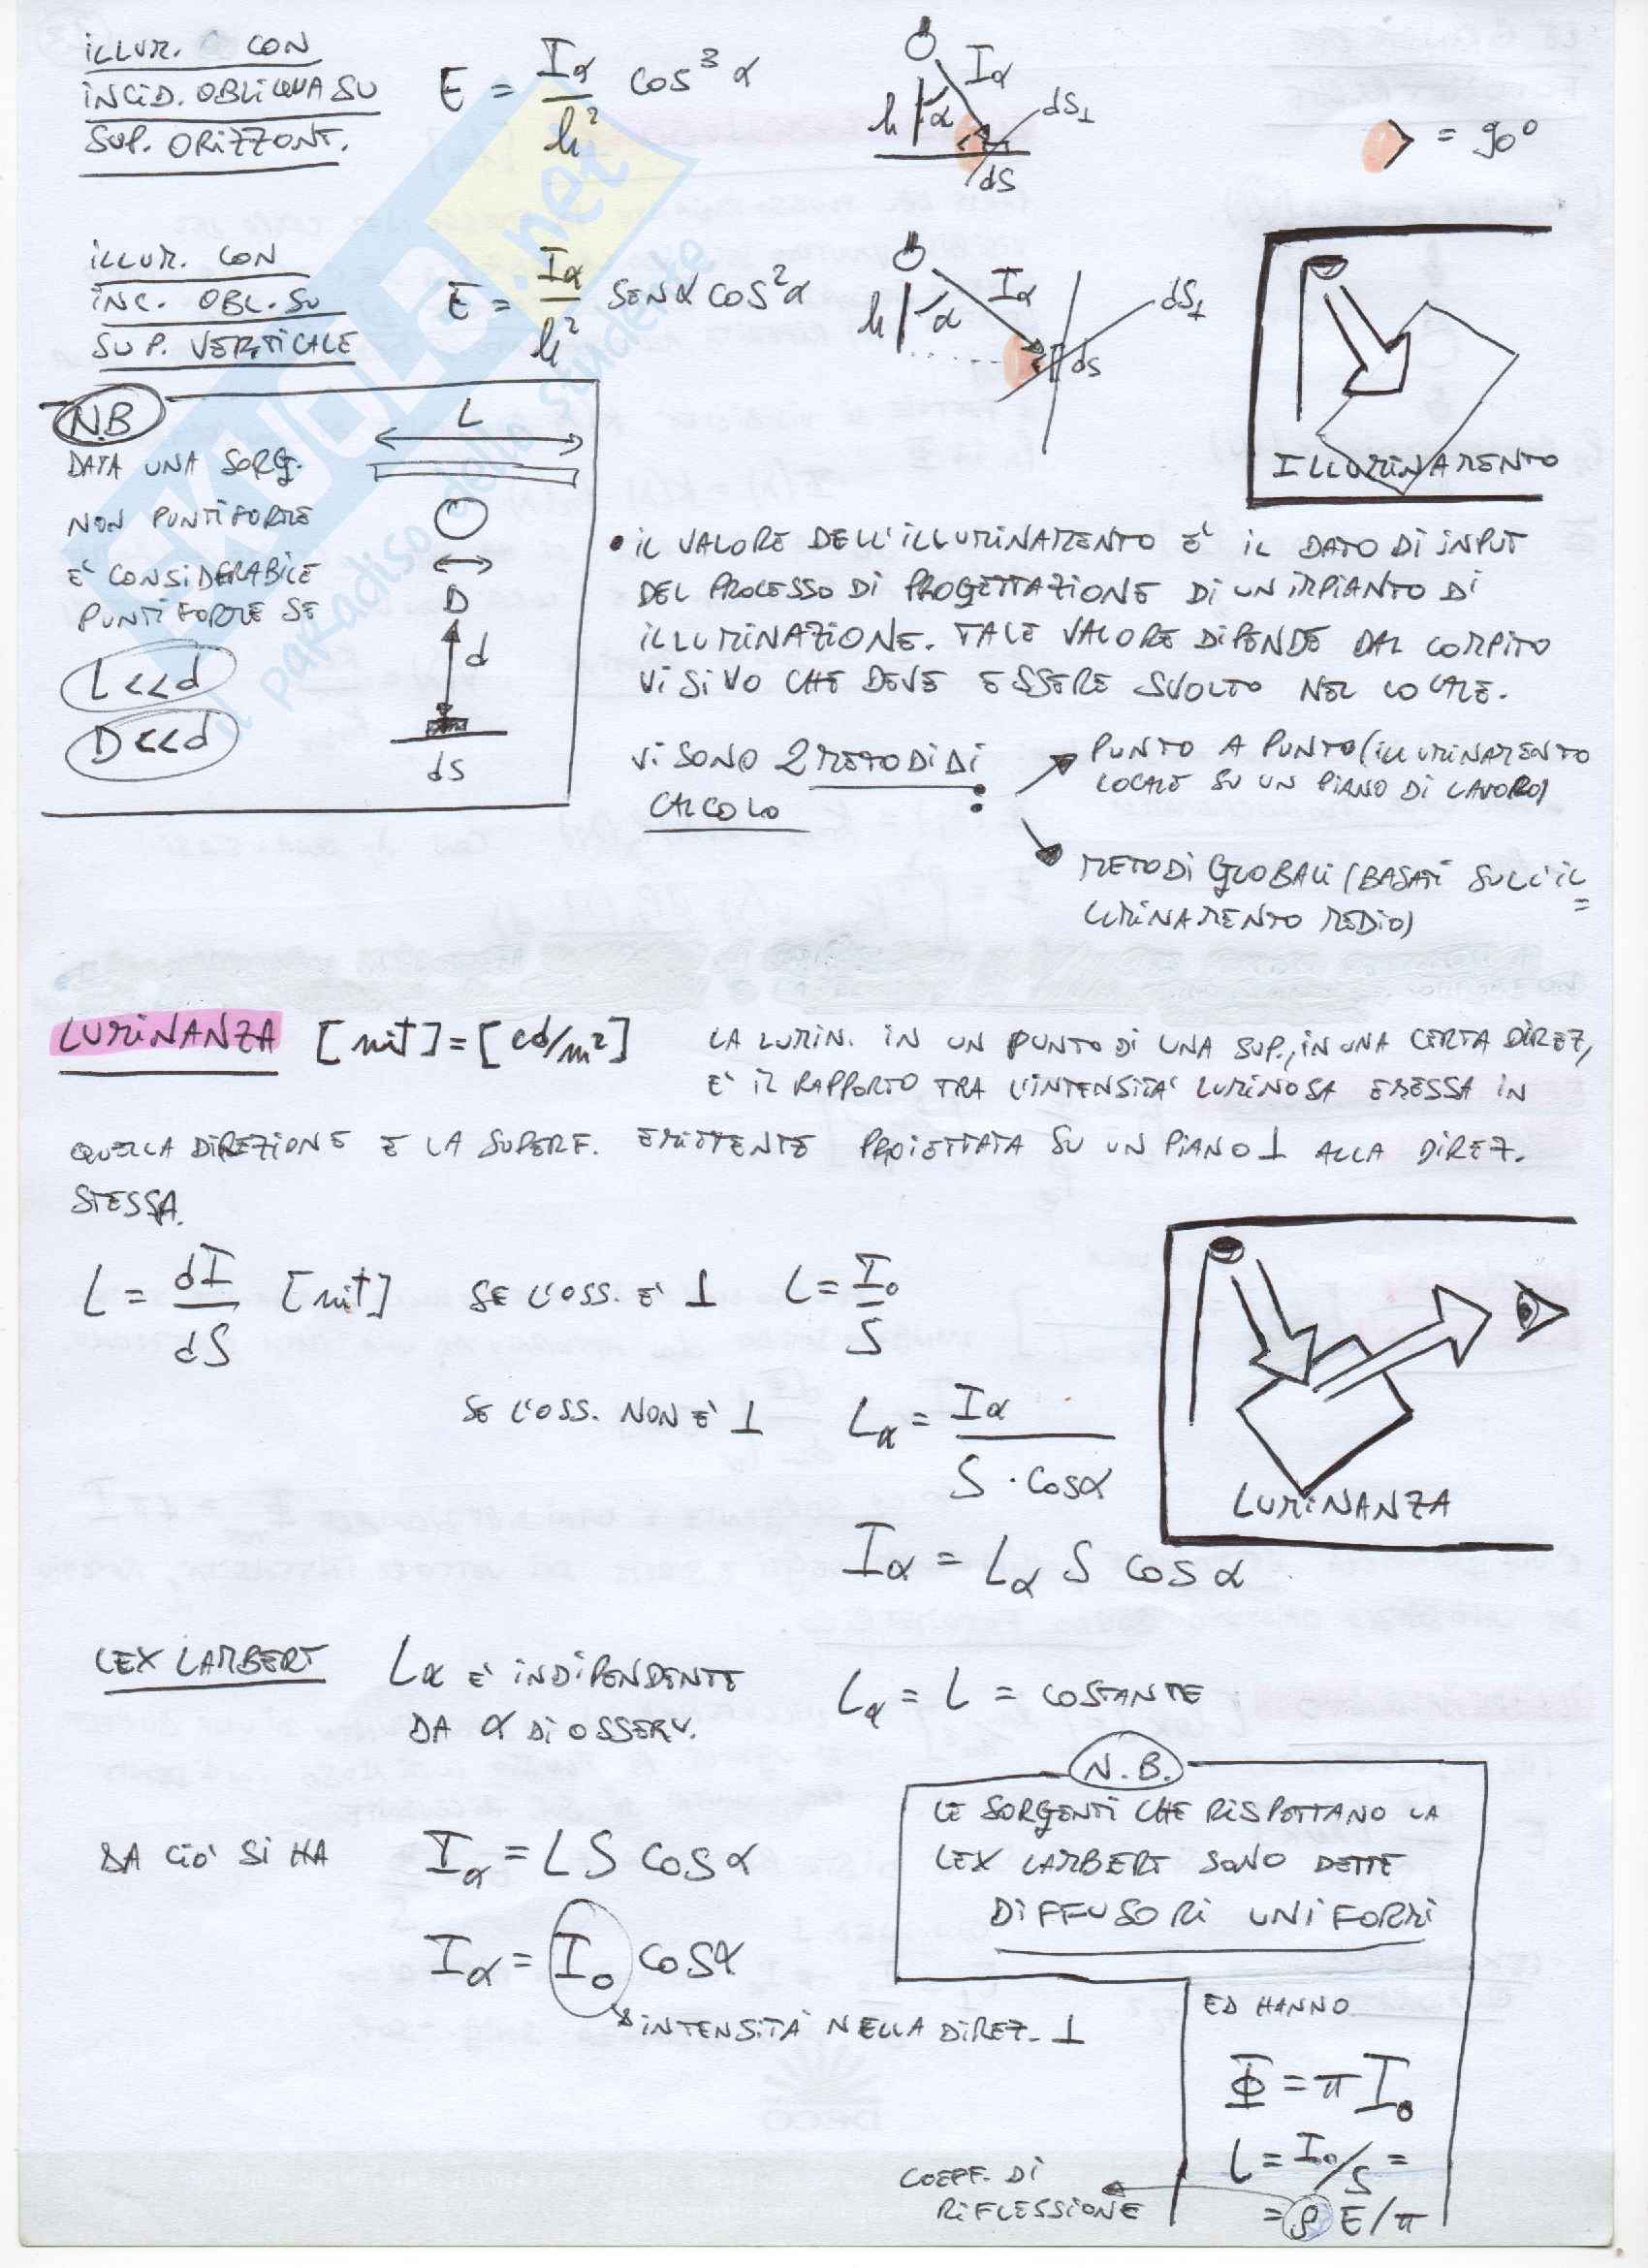 ILLUM. CON
INCID. OBLIQUA SU
SUP. ORIZZONT.
E = Iα/h² cos³α
Iα
h
α
dS⊥
dS
= 90°
ILLUM. CON
INC. OBL. SU
SUP. VERTICALE
E = Iα/h² senα cos²α
Iα
h
α
dS⊥
dS
ILLUMINAMENTO
N.B
DATA UNA SORG.
NON PUNTIFORME
E' CONSIDERABILE
PUNTIFORME SE
L<<d
D<<d
L
D
d
dS
• IL VALORE DELL'ILLUMINAMENTO E' IL DATO DI INPUT
DEL PROCESSO DI PROGETTAZIONE DI UN IMPIANTO DI
ILLUMINAZIONE. TALE VALORE DIPENDE DAL COMPITO
VISIVO CHE DEVE ESSERE SVOLTO NEL LOCALE.
VI SONO 2 METODI DI
CALCOLO :
PUNTO A PUNTO (ILLUMINAMENTO
LOCALE SU UN PIANO DI LAVORO)
METODI GLOBALI (BASATI SULL'IL=
LUMINAMENTO MEDIO)
LUMINANZA [nit] = [cd/m²] LA LUMIN. IN UN PUNTO DI UNA SUP., IN UNA CERTA DIREZ,
E' IL RAPPORTO TRA L'INTENSITA' LUMINOSA EMESSA IN
QUELLA DIREZIONE E LA SUPERF. EMITTENTE PROIETTATA SU UN PIANO ⊥ ALLA DIREZ.
STESSA.
L = dI/dS [nit] SE L'OSS. E' ⊥ L = I₀/S
SE L'OSS. NON E' ⊥ Lα = Iα/(S · cosα)
Iα = Lα S cosα
LUMINANZA
LEX LAMBERT Lα E' INDIPENDENTE
DA α DI OSSERV.
Lα = L = COSTANTE
DA CIO' SI HA Iα = L S cosα
Iα = I₀ cosα
INTENSITA' NELLA DIREZ. ⊥
N.B.
LE SORGENTI CHE RISPETTANO LA
LEX LAMBERT SONO DETTE
DIFFUSORI UNIFORMI
ED HANNO
Φ = π I₀
L = I₀/S =
= ρE/π
COEFF. DI
RIFLESSIONE
SKUOLA.net
il paradiso dello studente